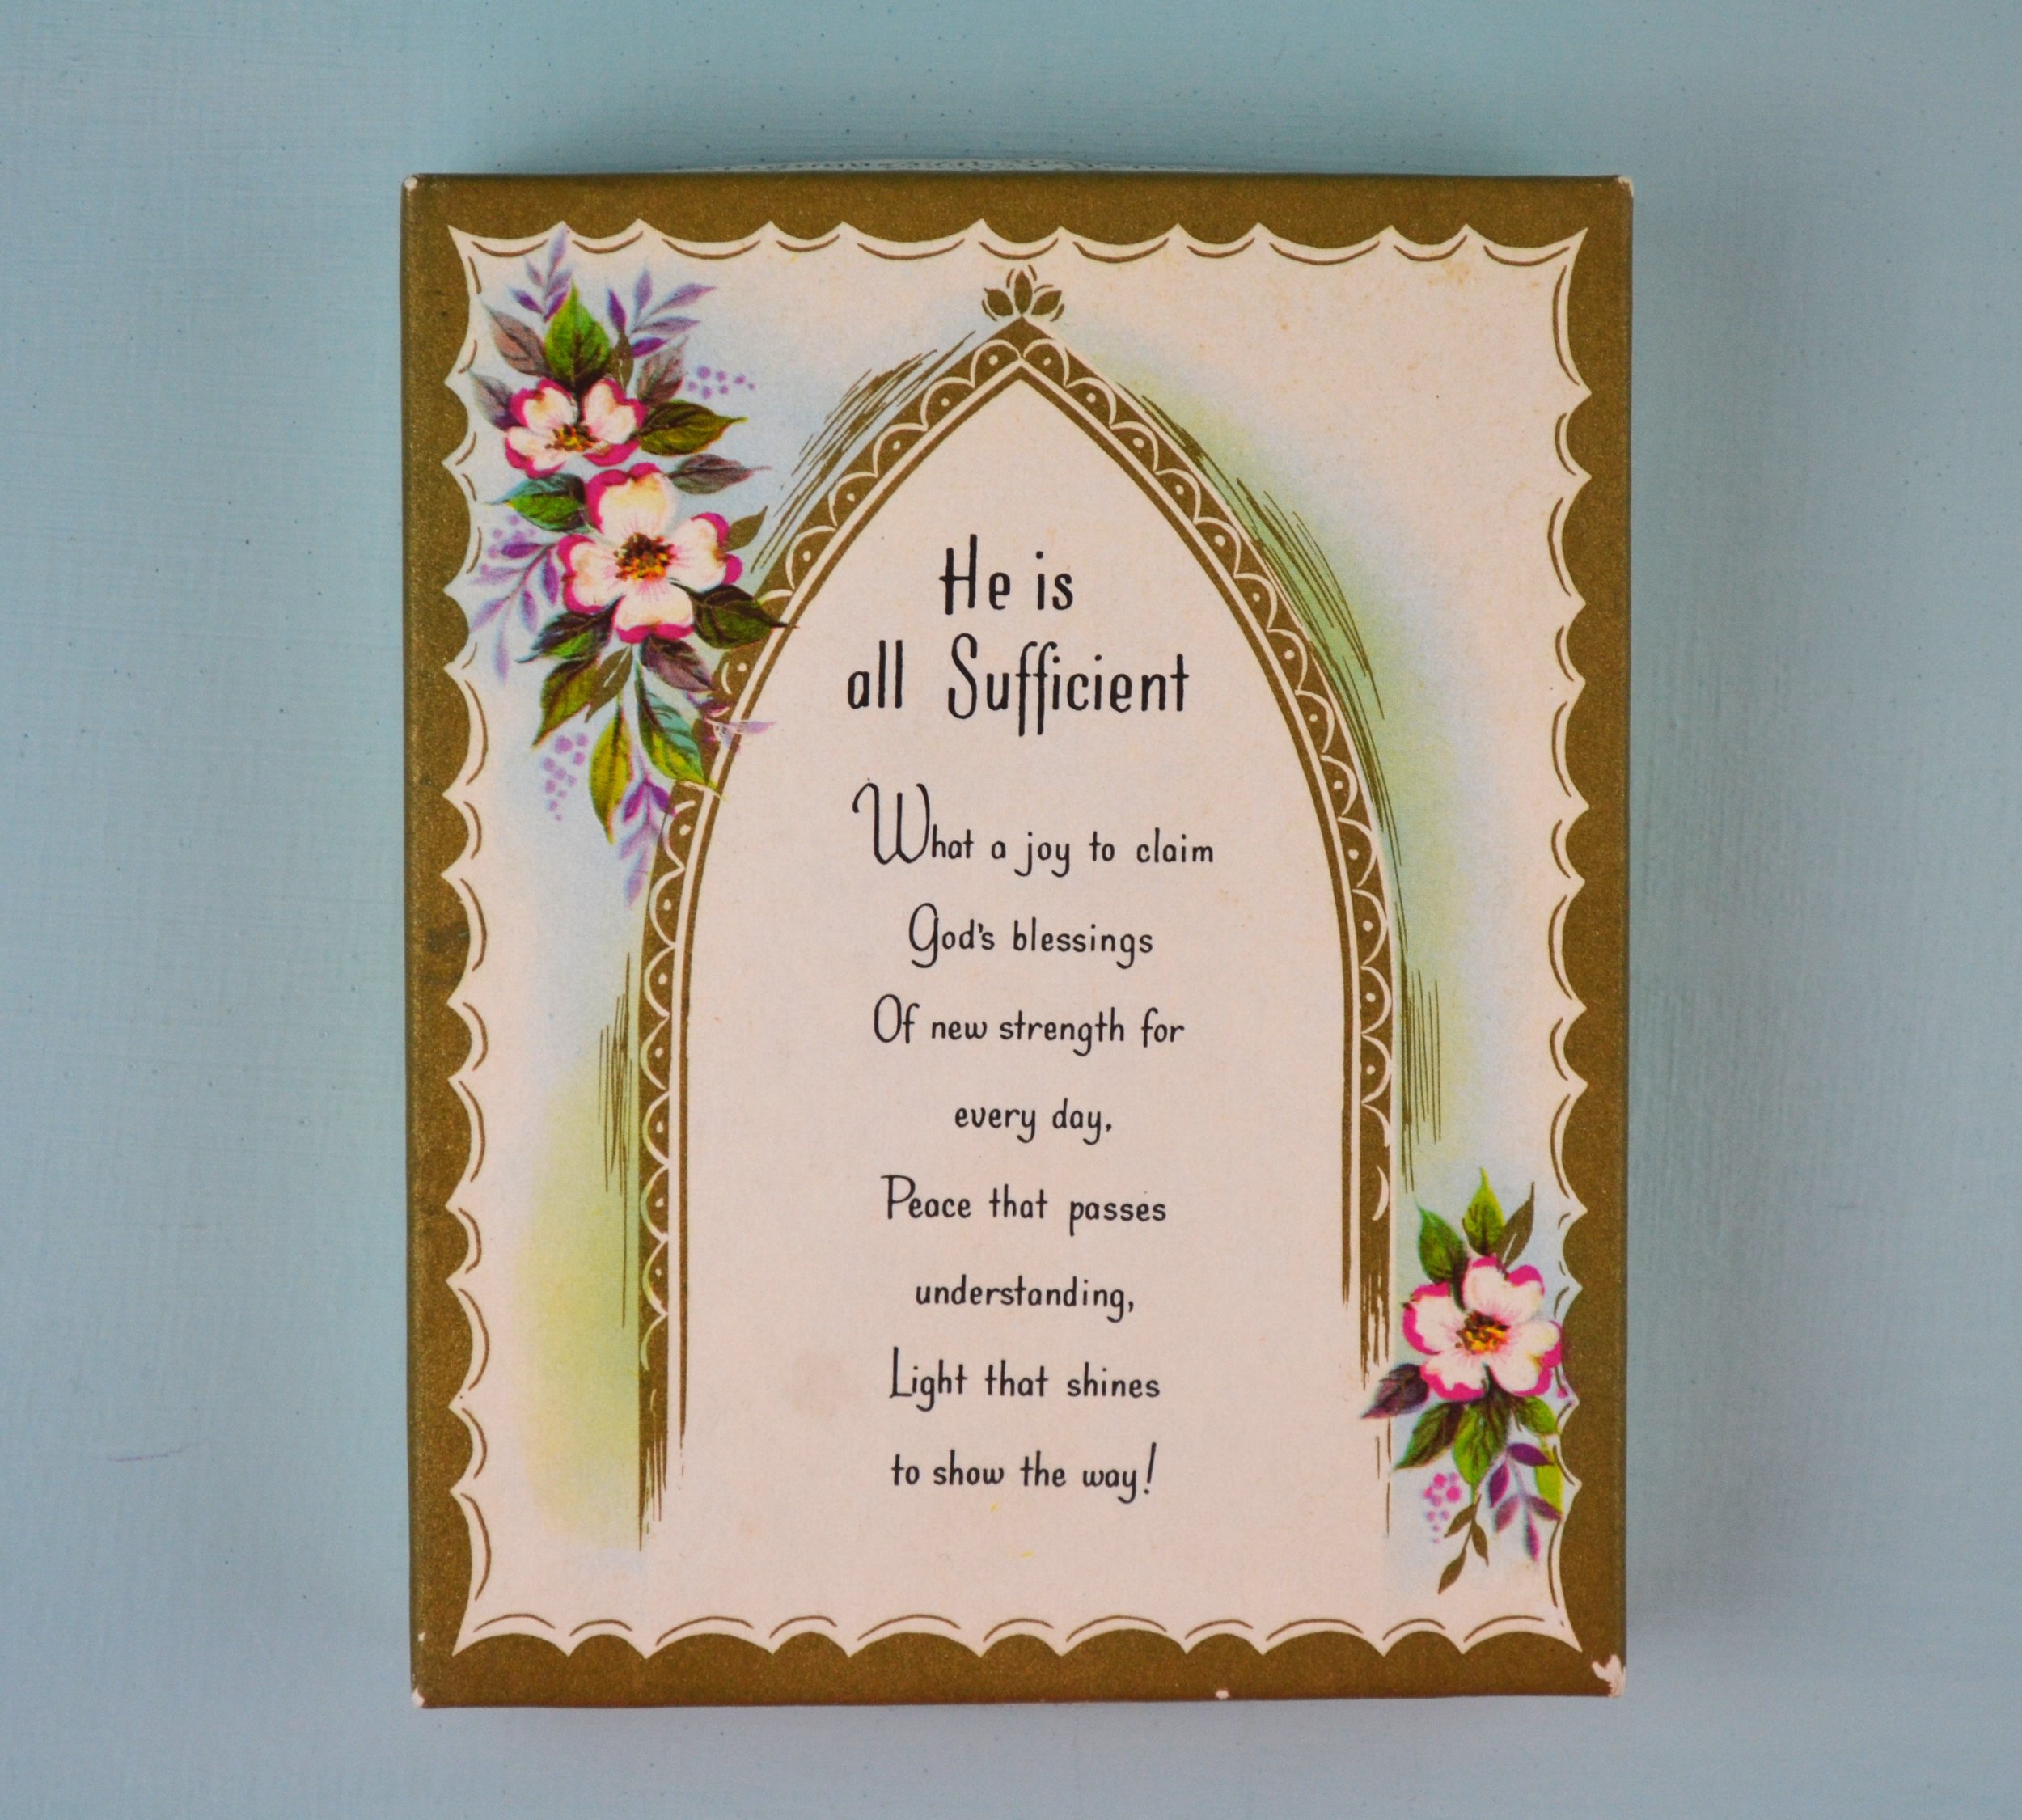 He is
all Sufficient
What a joy to claim
God's blessings
Of new strength for
every day,
Peace that passes
understanding,
Light that shines
to show the way!